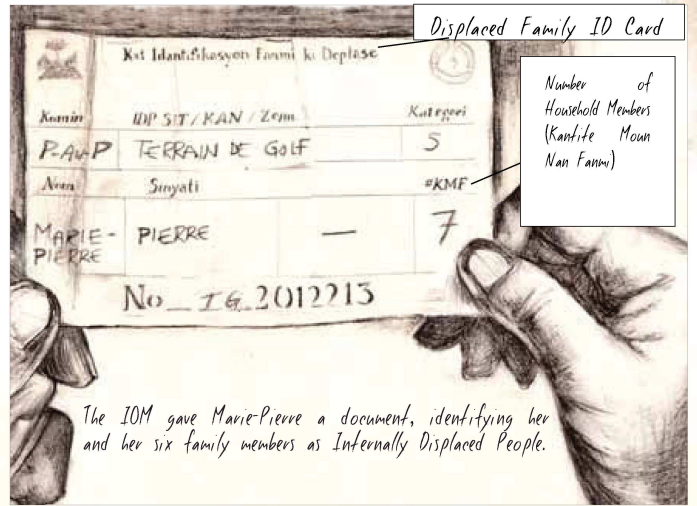 Displaced Family ID Card
Kat Idantifikasyon Fanmi ki Deplase
Number of
Household Members
(Kantite Moun
Nan Fanmi)
Komin IDP SIT / KAN / Zonn Kategori
P-Au-P TERRAIN DE GOLF 5
Nom Sinyati #KMF
MARIE-PIERRE PIERRE — 7
No_IG.2012213
The IOM gave Marie-Pierre a document, identifying her
and her six family members as Internally Displaced People.